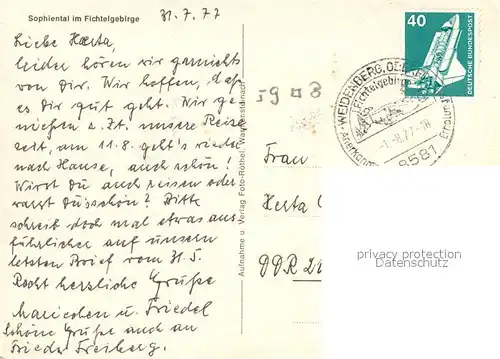 Sophiental im Fichtelgebirge
31.7.77
Liebe Herta,
leider hören wir garnichts
von Dir. Wir hoffen, daß
es Dir gut geht. Wir ge-
nießen z. Zt. unsere Reise
zeit, am 11.8. geht's wieder
nach Hause, auch schön!
Wirst Du auch reisen oder
warst Du schon? Bitte
schreib doch mal etwas aus
führlicher auf unsern
letzten Brief vom 31.5.
Recht herzliche Grüße
Mariechen u. Friedel
Schöne Grüße auch an
Frieda Freiberg.
Aufnahme u. Verlag Foto-Röthel
59 8
40
DEUTSCHE BUNDESPOST
WEIDENBERG, OBERFR
Fichtelgebirge
-1.-8.77-18
8581
Anerkann
Erholun
Frau
Herta
DDR
privacy protection
Datenschutz